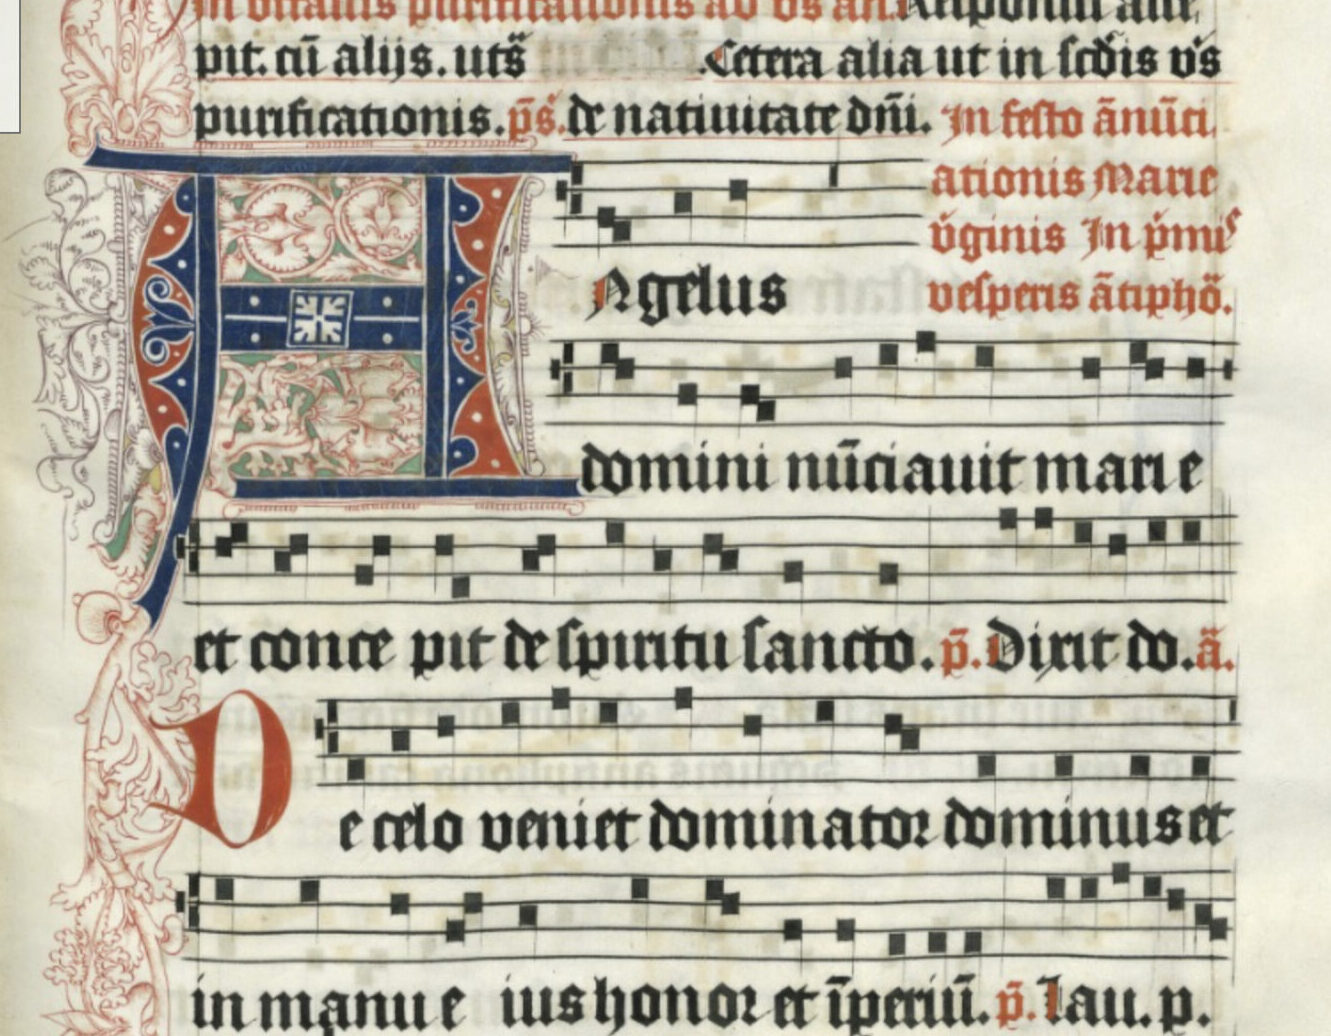 in vitalus purificationis ad vs añ. Responsū aūt,
pit. cū alijs. uts̄ Cetera alia ut in scd̄is v̄s
purificationis. p̄s̄. de natiuitate dn̄i. In festo ānūci
ationis Marie
v̄ginis In p̄mis
vesperis ātiphō.
Angelus
domini nūciauit marie
et conce pit de spiritu sancto. p̄. Dixit do. ā.
De celo veniet dominator dominus et
in manu e ius honor et īperiū. p̄. Lau. p.